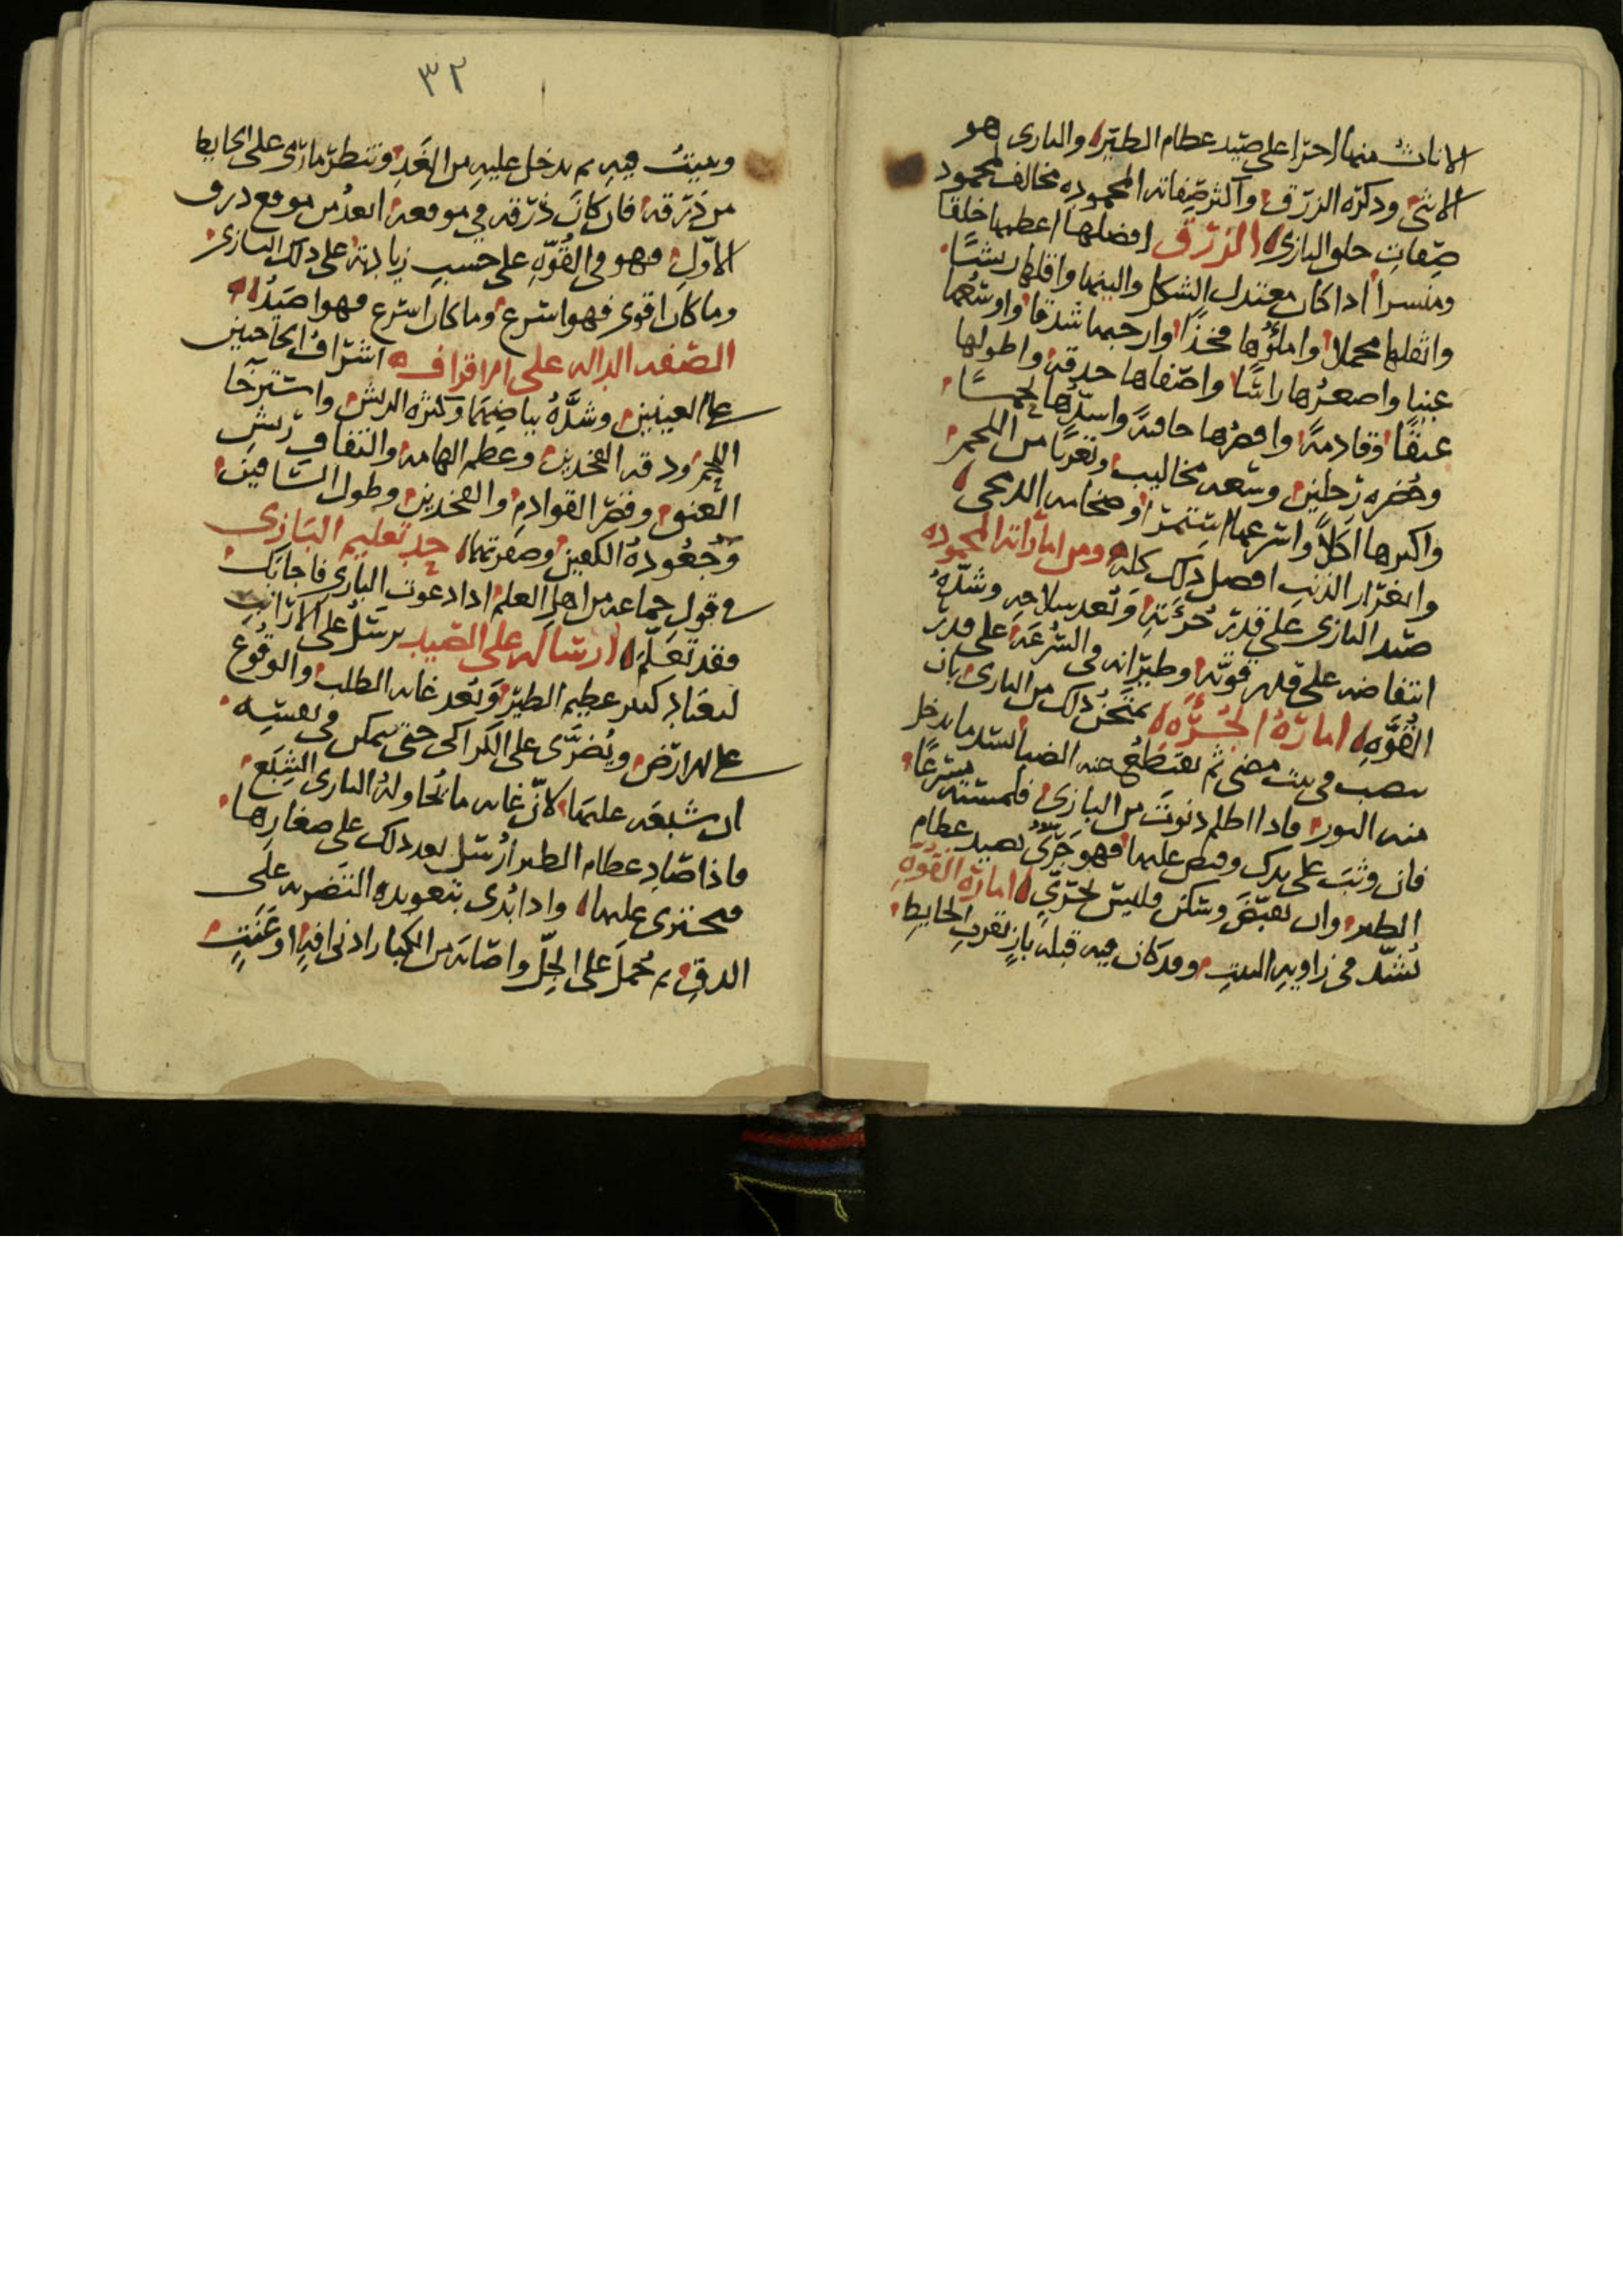 الاناث منها اجرا على صيد عظام الطير والبازى هو
الانثى وذكره الزرق واكثر صفاته المحموده مخالف لمحمود
صفات خلق البازى الزرق افضلها اعظمها خلقا
ومنسرا اذا كان معتدل الشكل والينها واقلها ريشا
واثقلها محملا واملؤها فخذا وارحبها شدقا واوسعها
عينا واصغرها راسا واصفاها حدقة واطولها
عنقا وقادمة واقصرها خافية واشدها لحما
وخضره رجلين وسعه مخاليب وتعريا من اللحم
واكبرها اكلا واسرعها استمرا وضخامه الدمجى
وانغزار الذنب افضل ذلك كله ومن اماراته المحموده
صيد البازى على قدر جرءته وبعد سلاحه وشدة
انتفاضه على قدر قوته وطيرانه فى السرعة على قدر
القوه امارة الجرءه يمتحن ذلك من البازى بان
ينصب فى بيت مضى ثم يقتطع عنه الضيا بسد ما يدخل
منه النور فاذا اظلم دنوت من البازى فلمسته مسرعا
فان وثب على يدك وقبض عليها فهو جرى يصيد عظام
الطير وان تقبض وسكن فليس بجرى امارة القوه
يشد فى زاويه البيت وقد كان فيه قبله باز بقرب الحايط
٣٢
ويبيت فيه ثم يدخل عليه من الغد وتنظر ما رمى على الحايط
من ذرقه فان كان ذرقه فى موقعه ابعد من موقع ذرق
الاول فهو فى القوه على حسب زيادته على ذلك البازى
وما كان اقوى فهو اسرع وما كان اسرع فهو اصيد
الصفه الداله على الاقراف اشراف الحاجبين
على العينين وشدة بياضهما وكثره الريش واسترخا
اللحم ودقه الفخذين وعظم الهامه والتفاف ريش
العنق وقصر القوادم والفخذين وطول الساقين
وجعودة الكفين وصفرتهما حد تعليم البازى
فى قول جماعه من اهل العلم اذا دعوت البازى فاجابك
فقد تعلم ارساله على الصيد يرسل على الارانب
ليعتاد كسر عظيم الطير وبعد غايه الطلب والوقوع
على الارض ويضرى على الكراكى حتى يتمكن فى نفسه
ان شبعه عليها لان غايه ما يحاوله البازى الشبع
فاذا صاد عظام الطير ارسل بعد ذلك على صغارها
فيجتزى عليها واذا بدى بتعويده التضريه على
الدق ثم حمل على الجل واصابه من الكبار ادنى افة او عنت